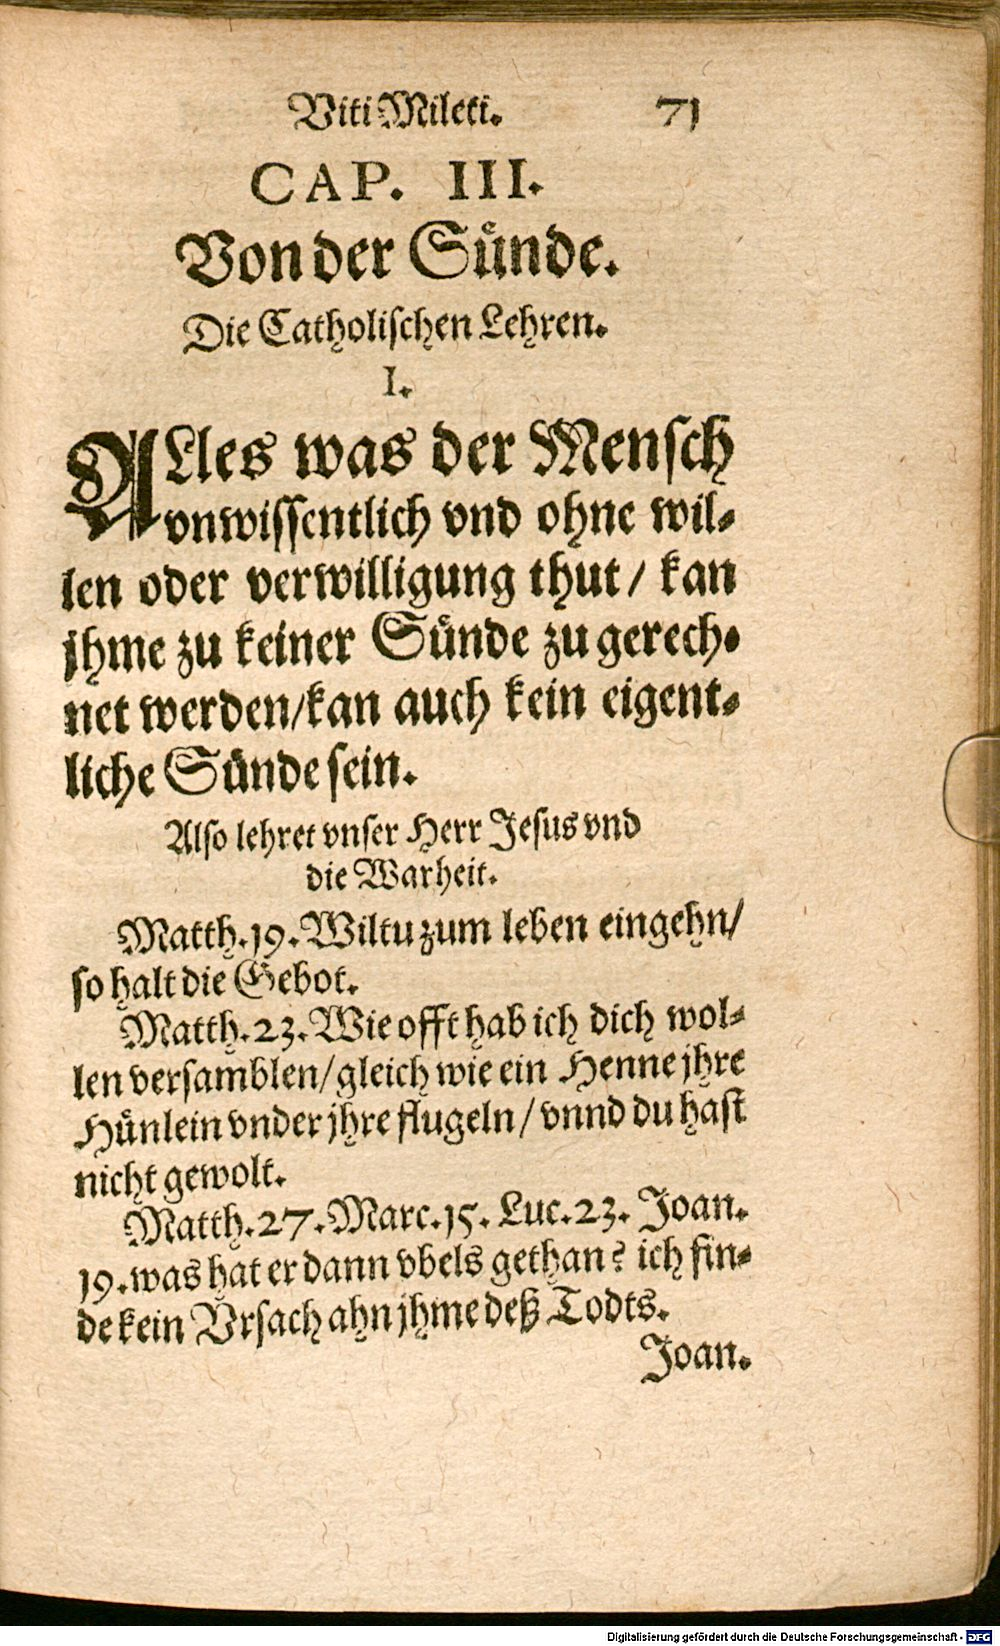 Viti Mileti. 71
CAP. III.
Von der Sünde.
Die Catholischen Lehren.
I.
ALles was der Mensch
vnwissentlich vnd ohne wil⸗
len oder verwilligung thut / kan
jhme zu keiner Sünde zu gerech⸗
net werden/kan auch kein eigent⸗
liche Sünde sein.
Also lehret vnser Herr Jesus vnd
die Warheit.
Matth. 19. Wiltu zum leben eingehn/
so halt die Gebot.
Matth. 23. Wie offt hab ich dich wol⸗
len versamblen/gleich wie ein Henne jhre
Hünlein vnder jhre flugeln / vnnd du hast
nicht gewolt.
Matth. 27. Marc. 15. Luc. 23. Joan.
19. was hat er dann vbels gethan? ich fin⸗
de kein Vrsach ahn jhme deß Todts.
Joan.
Digitalisierung gefördert durch die Deutsche Forschungsgemeinschaft - DFG